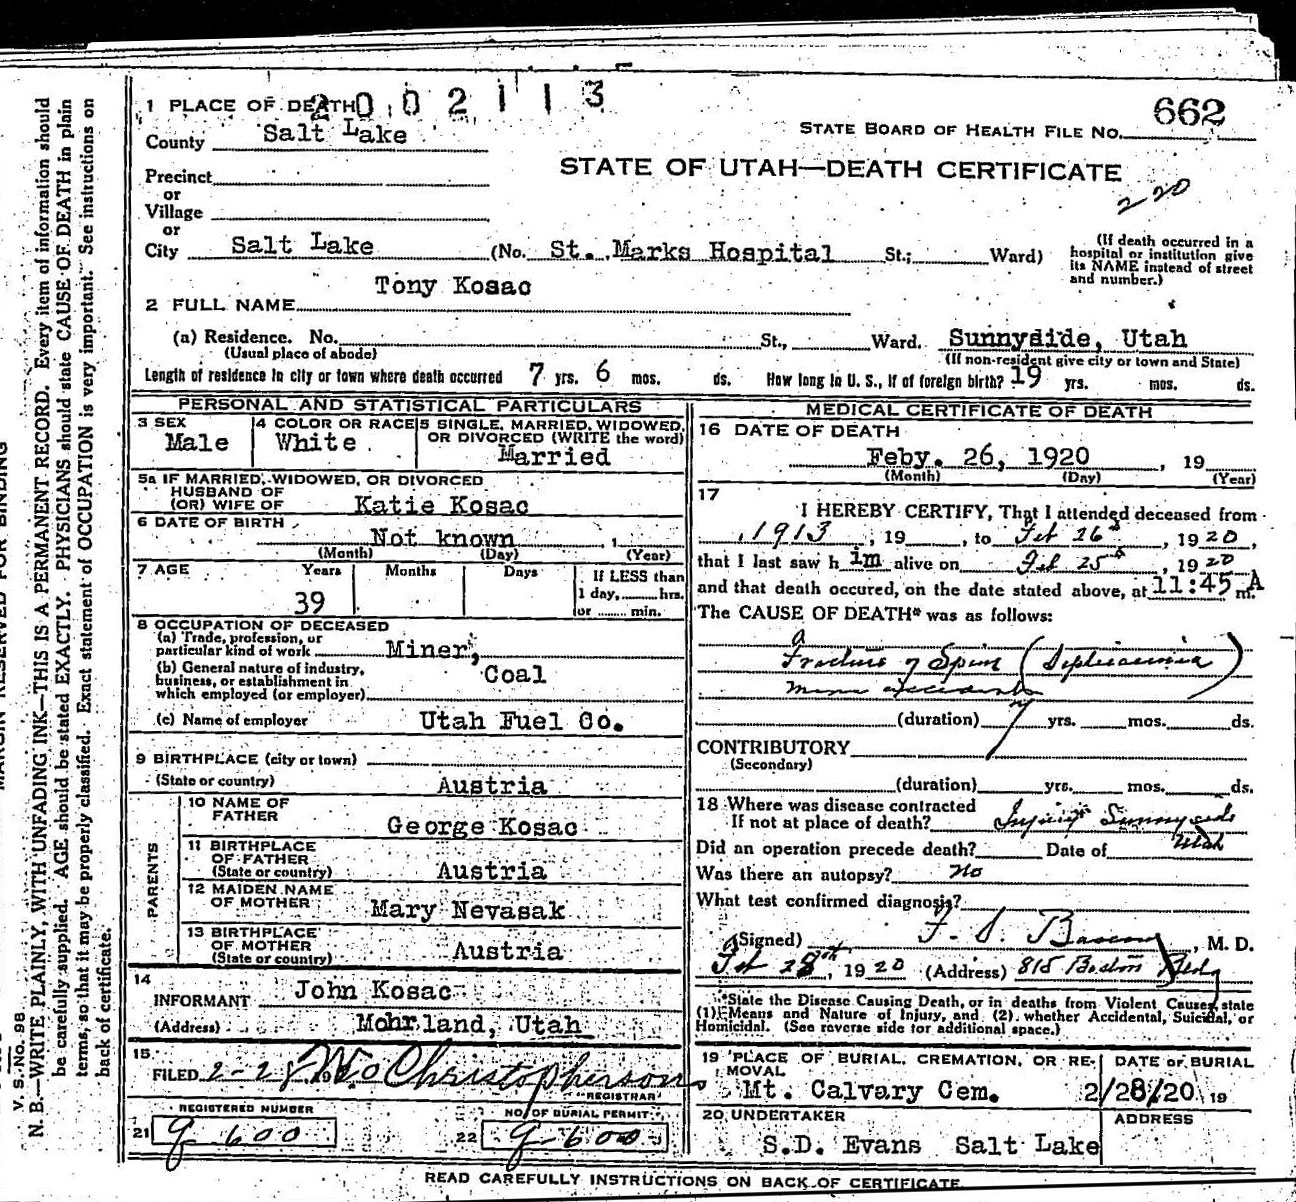 2002113
1 PLACE OF DEATH
County Salt Lake
STATE BOARD OF HEALTH FILE NO. 662
STATE OF UTAH—DEATH CERTIFICATE
220
Precinct
or
Village
or
City Salt Lake (No. St. Marks Hospital St.; Ward)
(If death occurred in a
hospital or institution give
its NAME instead of street
and number.)
2 FULL NAME Tony Kosac
(a) Residence. No. St., Ward. Sunnyside, Utah
(Usual place of abode) (If non-resident give city or town and State)
Length of residence in city or town where death occurred 7 yrs. 6 mos. ds. How long in U. S., if of foreign birth? 19 yrs. mos. ds.
PERSONAL AND STATISTICAL PARTICULARS
3 SEX
Male
4 COLOR OR RACE
White
5 SINGLE, MARRIED, WIDOWED,
OR DIVORCED (WRITE the word)
Married
5a IF MARRIED, WIDOWED, OR DIVORCED
HUSBAND OF
(OR) WIFE OF Katie Kosac
6 DATE OF BIRTH
Not known
(Month) (Day) (Year)
7 AGE Years Months Days
39
If LESS than
1 day, hrs.
or min.
8 OCCUPATION OF DECEASED
(a) Trade, profession, or
particular kind of work Miner,
(b) General nature of industry,
business, or establishment in
which employed (or employer) Coal
(c) Name of employer Utah Fuel Co.
9 BIRTHPLACE (city or town)
(State or country) Austria
PARENTS
10 NAME OF
FATHER George Kosac
11 BIRTHPLACE
OF FATHER
(State or country) Austria
12 MAIDEN NAME
OF MOTHER Mary Nevasak
13 BIRTHPLACE
OF MOTHER
(State or country) Austria
14
INFORMANT John Kosac
(Address) Mohrland, Utah
15
FILED 2-28 19 Christopherson
REGISTRAR
REGISTERED NUMBER
21 g 600
NO. OF BURIAL PERMIT
22 g 600
MEDICAL CERTIFICATE OF DEATH
16 DATE OF DEATH
Feby. 26, 1920, 19
(Month) (Day) (Year)
17
I HEREBY CERTIFY, That I attended deceased from
1913, 19, to Feb 26th, 1920,
that I last saw him alive on Feb 25th, 1920
and that death occured, on the date stated above, at 11:45 A m.
The CAUSE OF DEATH* was as follows:
a
Fracture of Spine (Septicaemia)
mine accident
(duration) 7 yrs. mos. ds.
CONTRIBUTORY
(Secondary)
(duration) yrs. mos. ds.
18 Where was disease contracted
If not at place of death? Injury Sunnyside
Utah
Did an operation precede death? Date of
Was there an autopsy? no
What test confirmed diagnosis?
(Signed) F. S. , M. D.
Feb 28th, 1920 (Address) 815 Boston Bldg
*State the Disease Causing Death, or in deaths from Violent Causes, state
(1) Means and Nature of Injury, and (2) whether Accidental, Suicidal, or
Homicidal. (See reverse side for additional space.)
19 PLACE OF BURIAL, CREMATION, OR RE-
MOVAL
Mt. Calvary Cem.
DATE OF BURIAL
2/28/20 19
20 UNDERTAKER
S.D. Evans Salt Lake
ADDRESS
READ CAREFULLY INSTRUCTIONS ON BACK OF CERTIFICATE
MARGIN RESERVED FOR BINDING
V. S. No. 98
N. B.—WRITE PLAINLY, WITH UNFADING INK—THIS IS A PERMANENT RECORD. Every item of information should
be carefully supplied. AGE should be stated EXACTLY. PHYSICIANS should state CAUSE OF DEATH in plain
terms, so that it may be properly classified. Exact statement of OCCUPATION is very important. See instructions on
back of certificate.